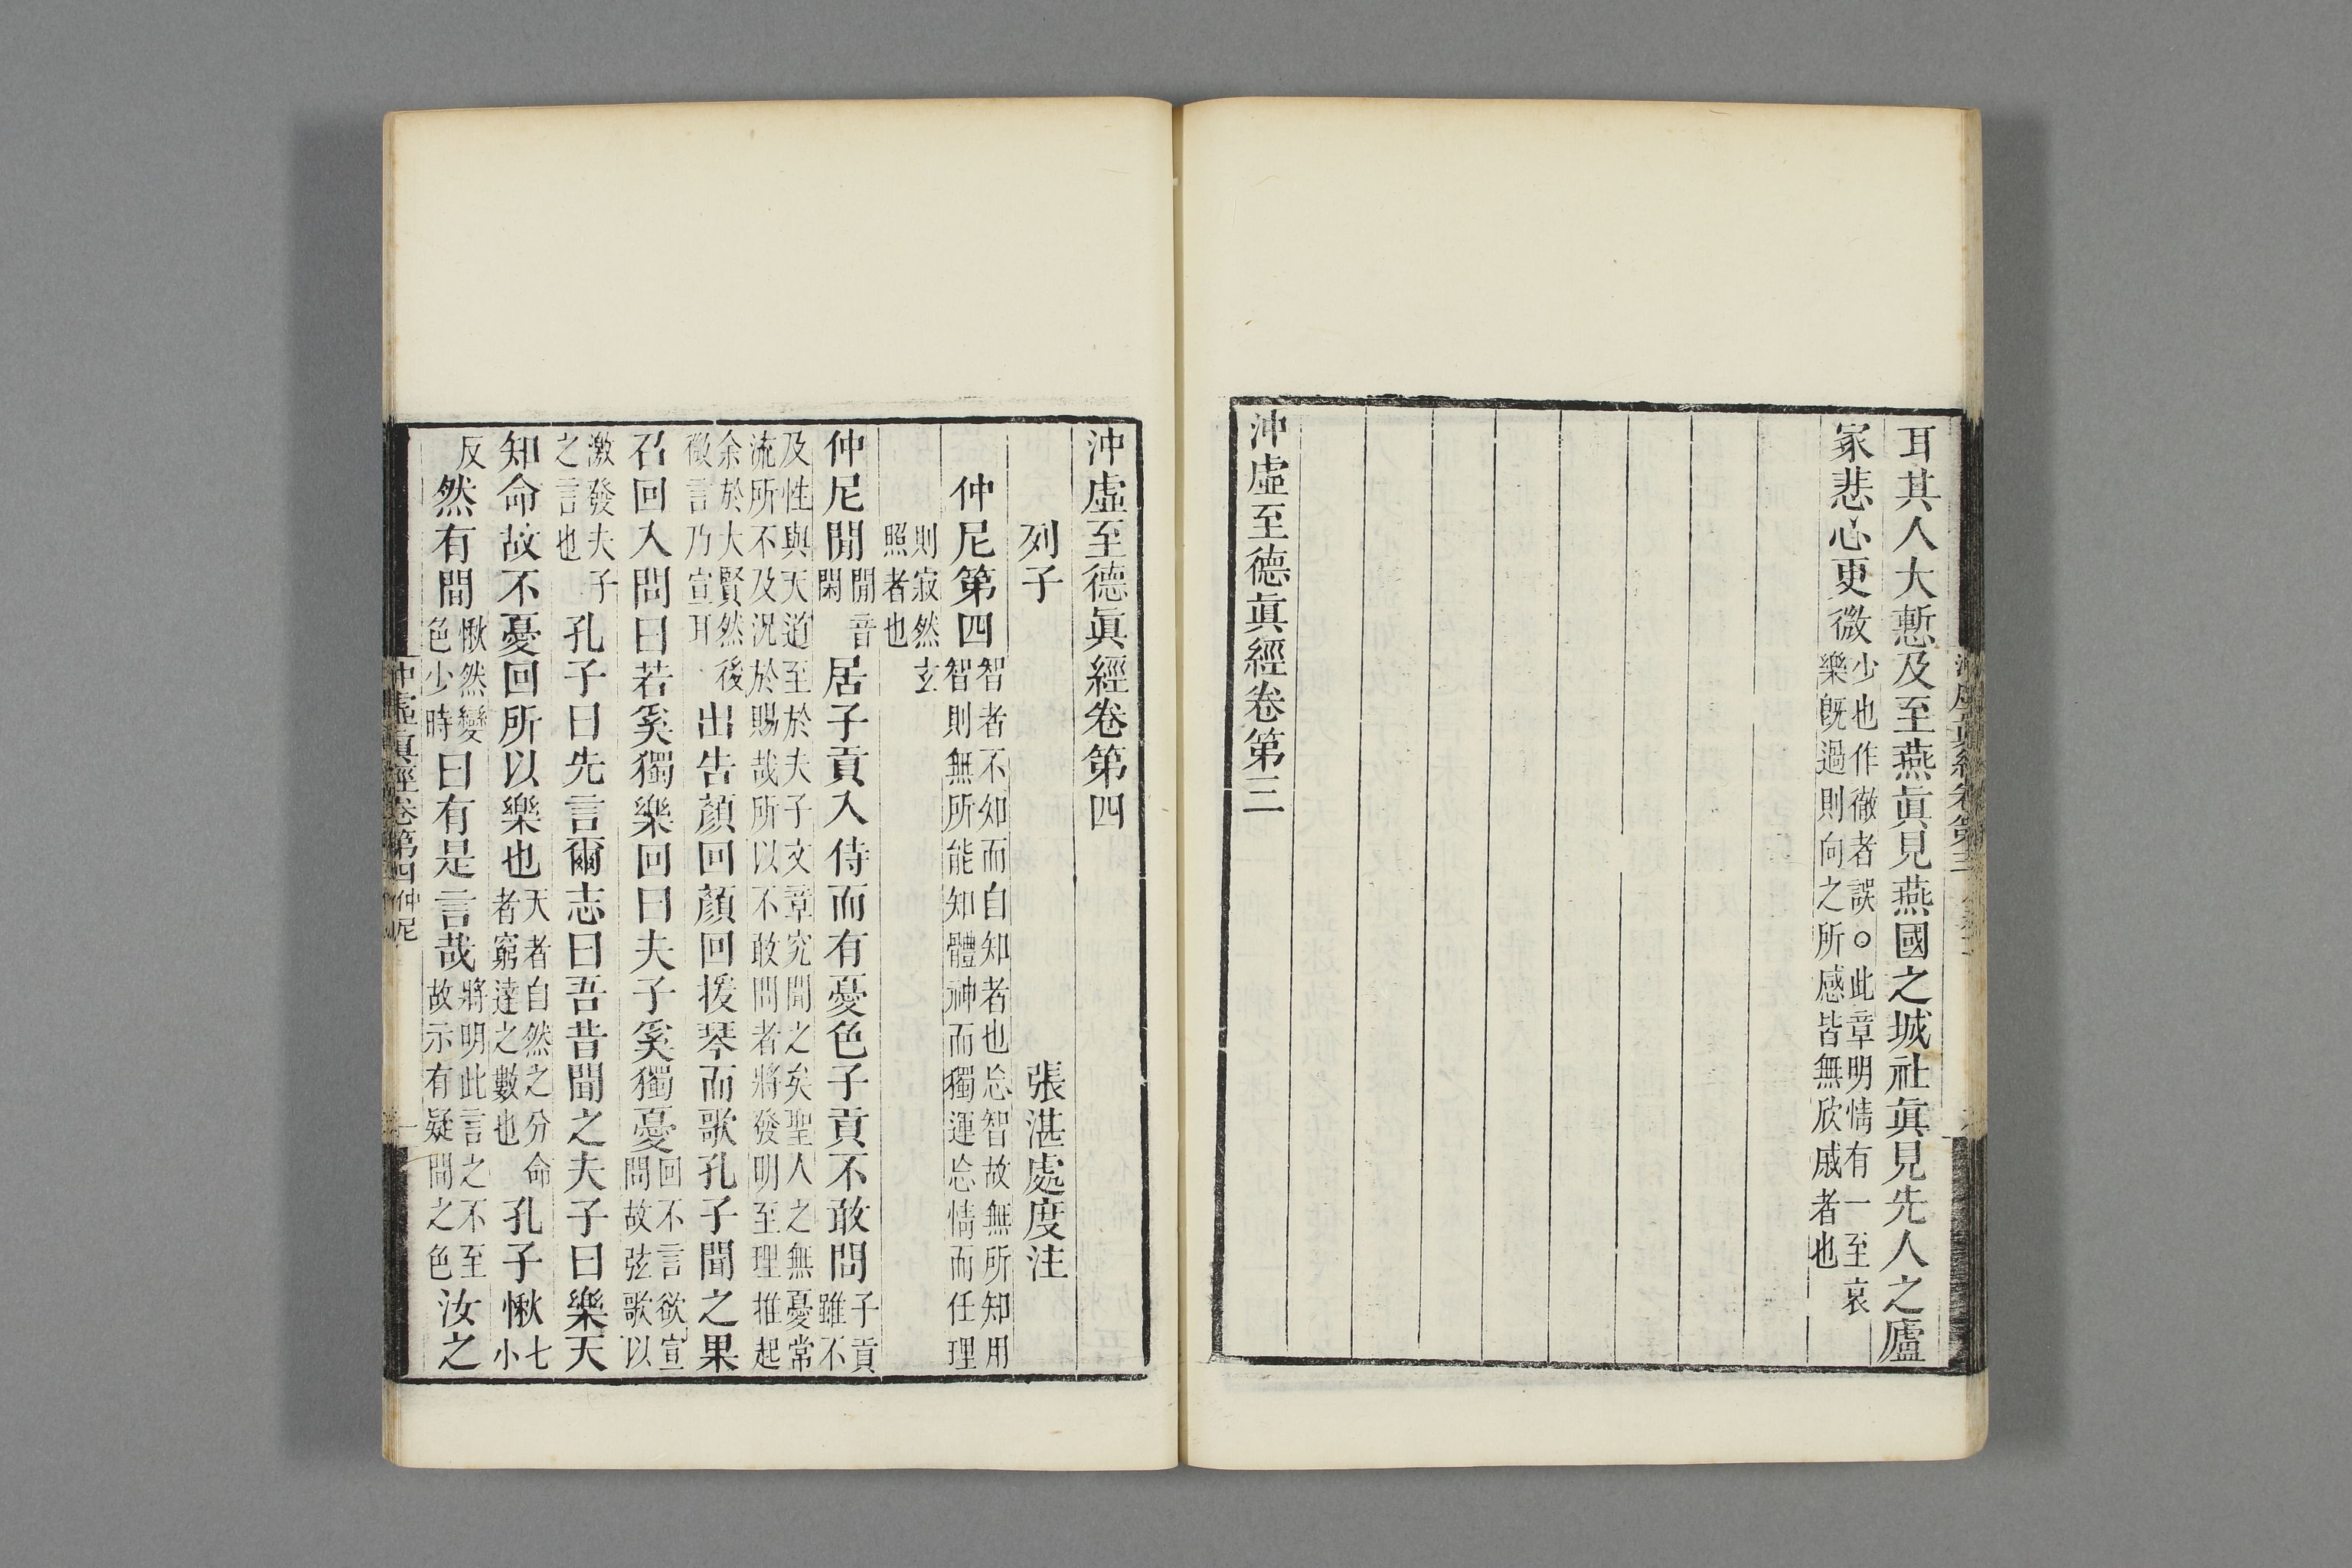 耳其人大慙及至燕眞見燕國之城社眞見先人之廬
冡悲心更微少也作徹者誤○此章明情有一至哀樂旣過則向之所感皆無欣戚者也
沖虛至德眞經卷第三
沖虛至德眞經卷第四
列子 張湛處度注
仲尼第四智者不知而自知者也忘智故無所知用智則無所能知體神而獨運忘情而任理
則寂然玄照者也
仲尼閒閒音閑居子貢入侍而有憂色子貢不敢問子貢雖不
及性與天道至於夫子文章究聞之矣聖人之無憂常流所不及況於賜哉所以不敢問者將發明至理推起
余於大賢然後微言乃宣耳出告顏回顏回援琴而歌孔子聞之果
召回入問曰若奚獨樂回曰夫子奚獨憂回不言欲宣問故弦歌以
激發夫子之言也孔子曰先言爾志曰吾昔聞之夫子曰樂天
知命故不憂回所以樂也天者自然之分命者窮達之數也孔子愀七小
反然有間愀然變色少時曰有是言哉將明此言之不至故示有疑間之色汝之
沖虛眞經卷第四 仲尼 一